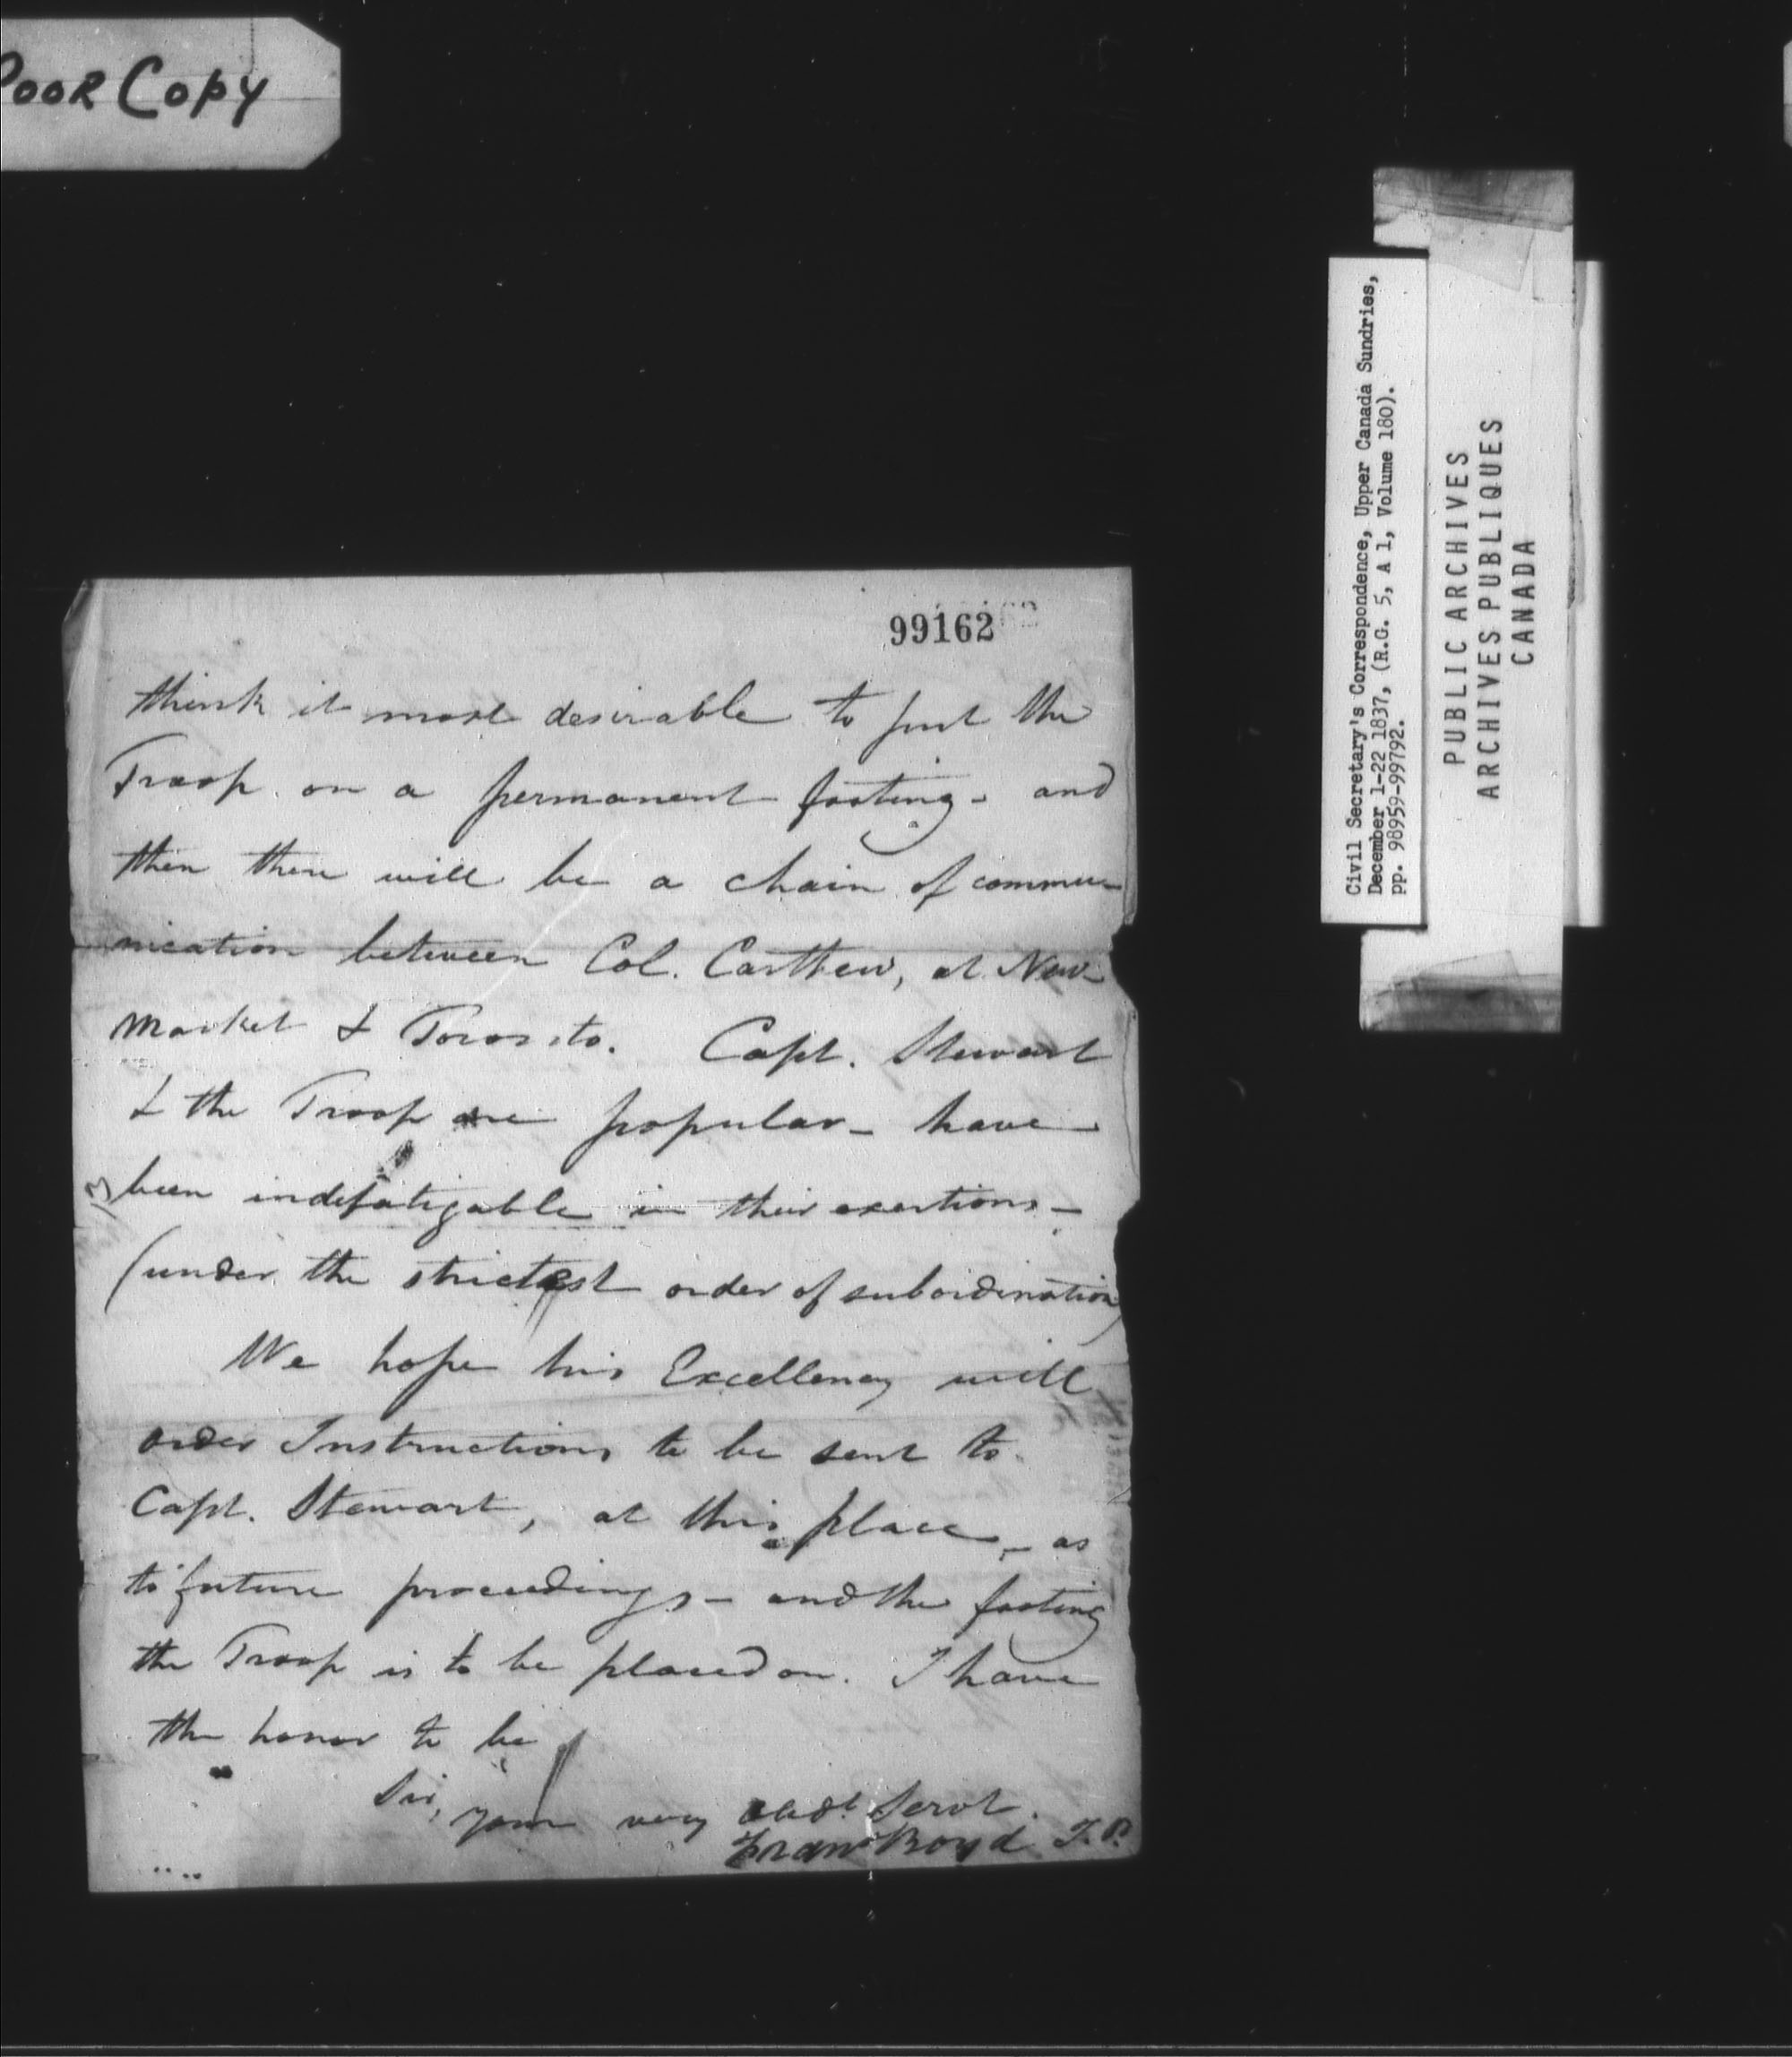 Poor Copy
99162
think it most desirable to put the
Troop on a permanent footing - and
then there will be a chain of commu-
nication between Col. Carthew, at New-
market & Toronto. Capt. Stewart
& the Troop are popular - have
been indefatigable in their exertions -
(under the strictest order of subordination)
We hope his Excellency will
order Instructions to be sent to
Capt. Stewart, at this place - as
to future proceedings - and the footing
the Troop is to be placed on. I have
the honor to be
Sir,
your very obdt Servt.
Frans Boyd J.P.
Civil Secretary's Correspondence, Upper Canada Sundries,
December 1-22 1837, (R.G. 5, A 1, Volume 180).
pp. 98959-99792.
PUBLIC ARCHIVES
ARCHIVES PUBLIQUES
CANADA